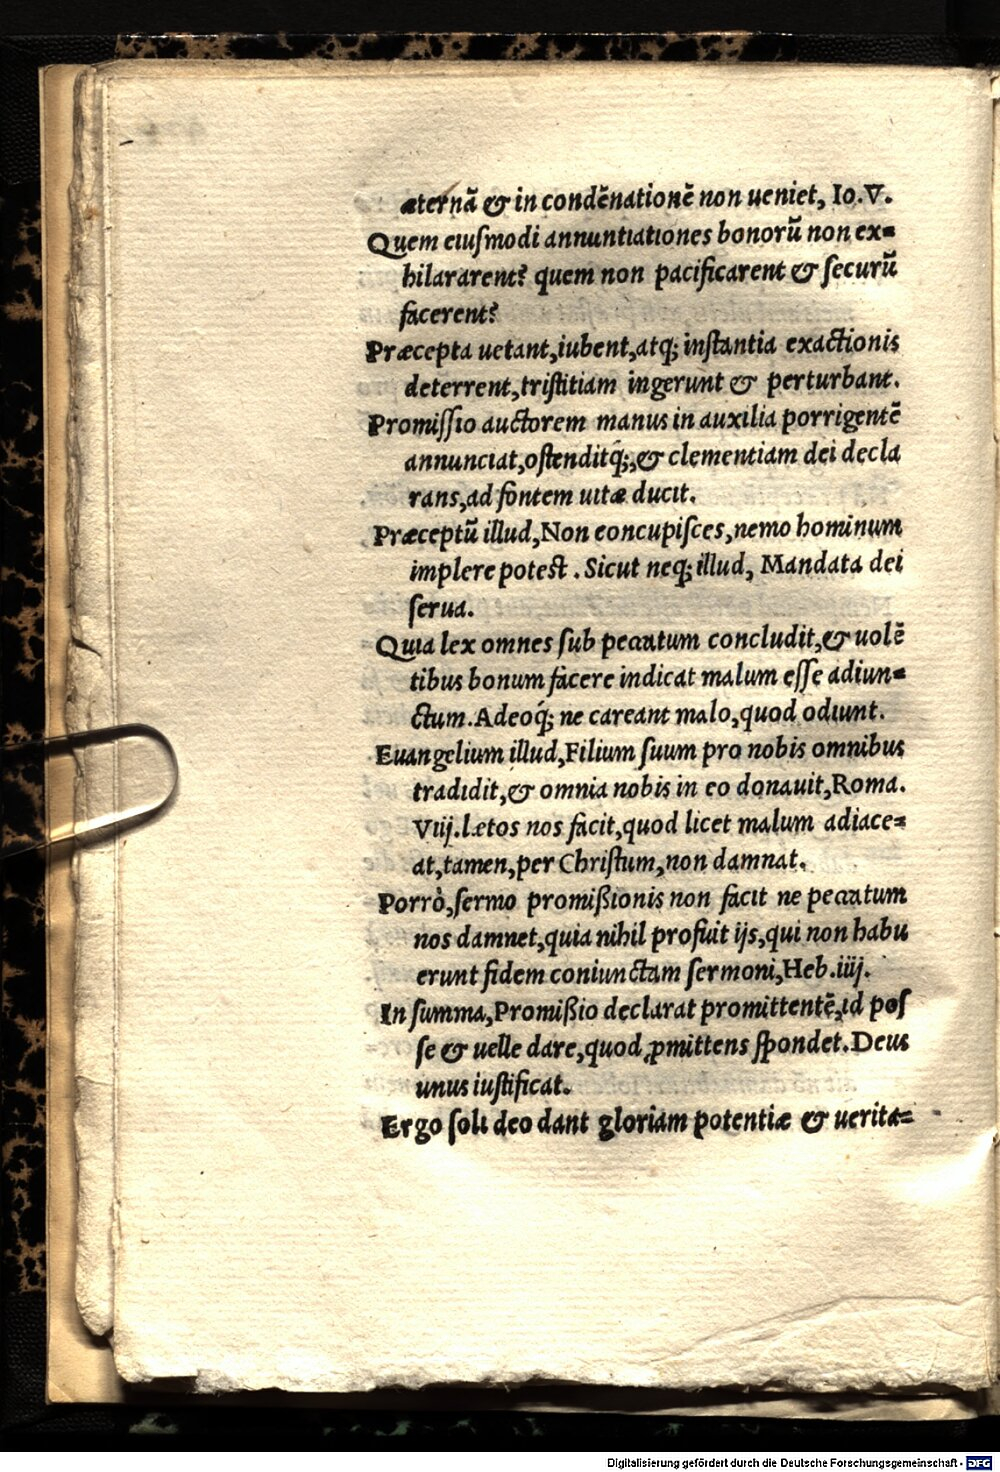 æternã & in condẽnationẽ non ueniet, Io.V.
Quem eiuſmodi annuntiationes bonorũ non ex=
hilararent? quem non pacificarent & ſecurũ
facerent?
Præcepta uetant,iubent,atq; inſtantia exactionis
deterrent,triſtitiam ingerunt & perturbant.
Promiſſio auctorem manus in auxilia porrigentẽ
annunciat,oſtenditq́;,& clementiam dei decla
rans,ad fontem uitæ ducit.
Præceptũ illud,Non eoncupiſces,nemo hominum
implere potest . Sicut neq; illud, Mandata dei
ſerua.
Quia lex omnes ſub peccatum concludit,& uolẽ
tibus bonum facere indicat malum eſſe adiun=
ctum.Adeoq́; ne careant malo,quod odiunt.
Euangelium illud,Filium ſuum pro nobis omnibus
tradidit,& omnia nobis in eo donauit,Roma.
Viij.lætos nos facit,quod licet malum adiace=
at,tamen,per Chriſtum,non damnat.
Porrò,ſermo promißionis non facit ne peccatum
nos damnet,quia nihil profuit ijs,qui non habu
erunt fidem coniunctam ſermoni,Heb.iiij.
In ſumma,Promißio declarat promittentẽ,id poſ
ſe & uelle dare,quod ꝓmittens ſpondet.Deus
unus iuſtificat.
Ergo ſoli deo dant gloriam potentiæ & uerita=
Digitalisierung gefördert durch die Deutsche Forschungsgemeinschaft - DFG